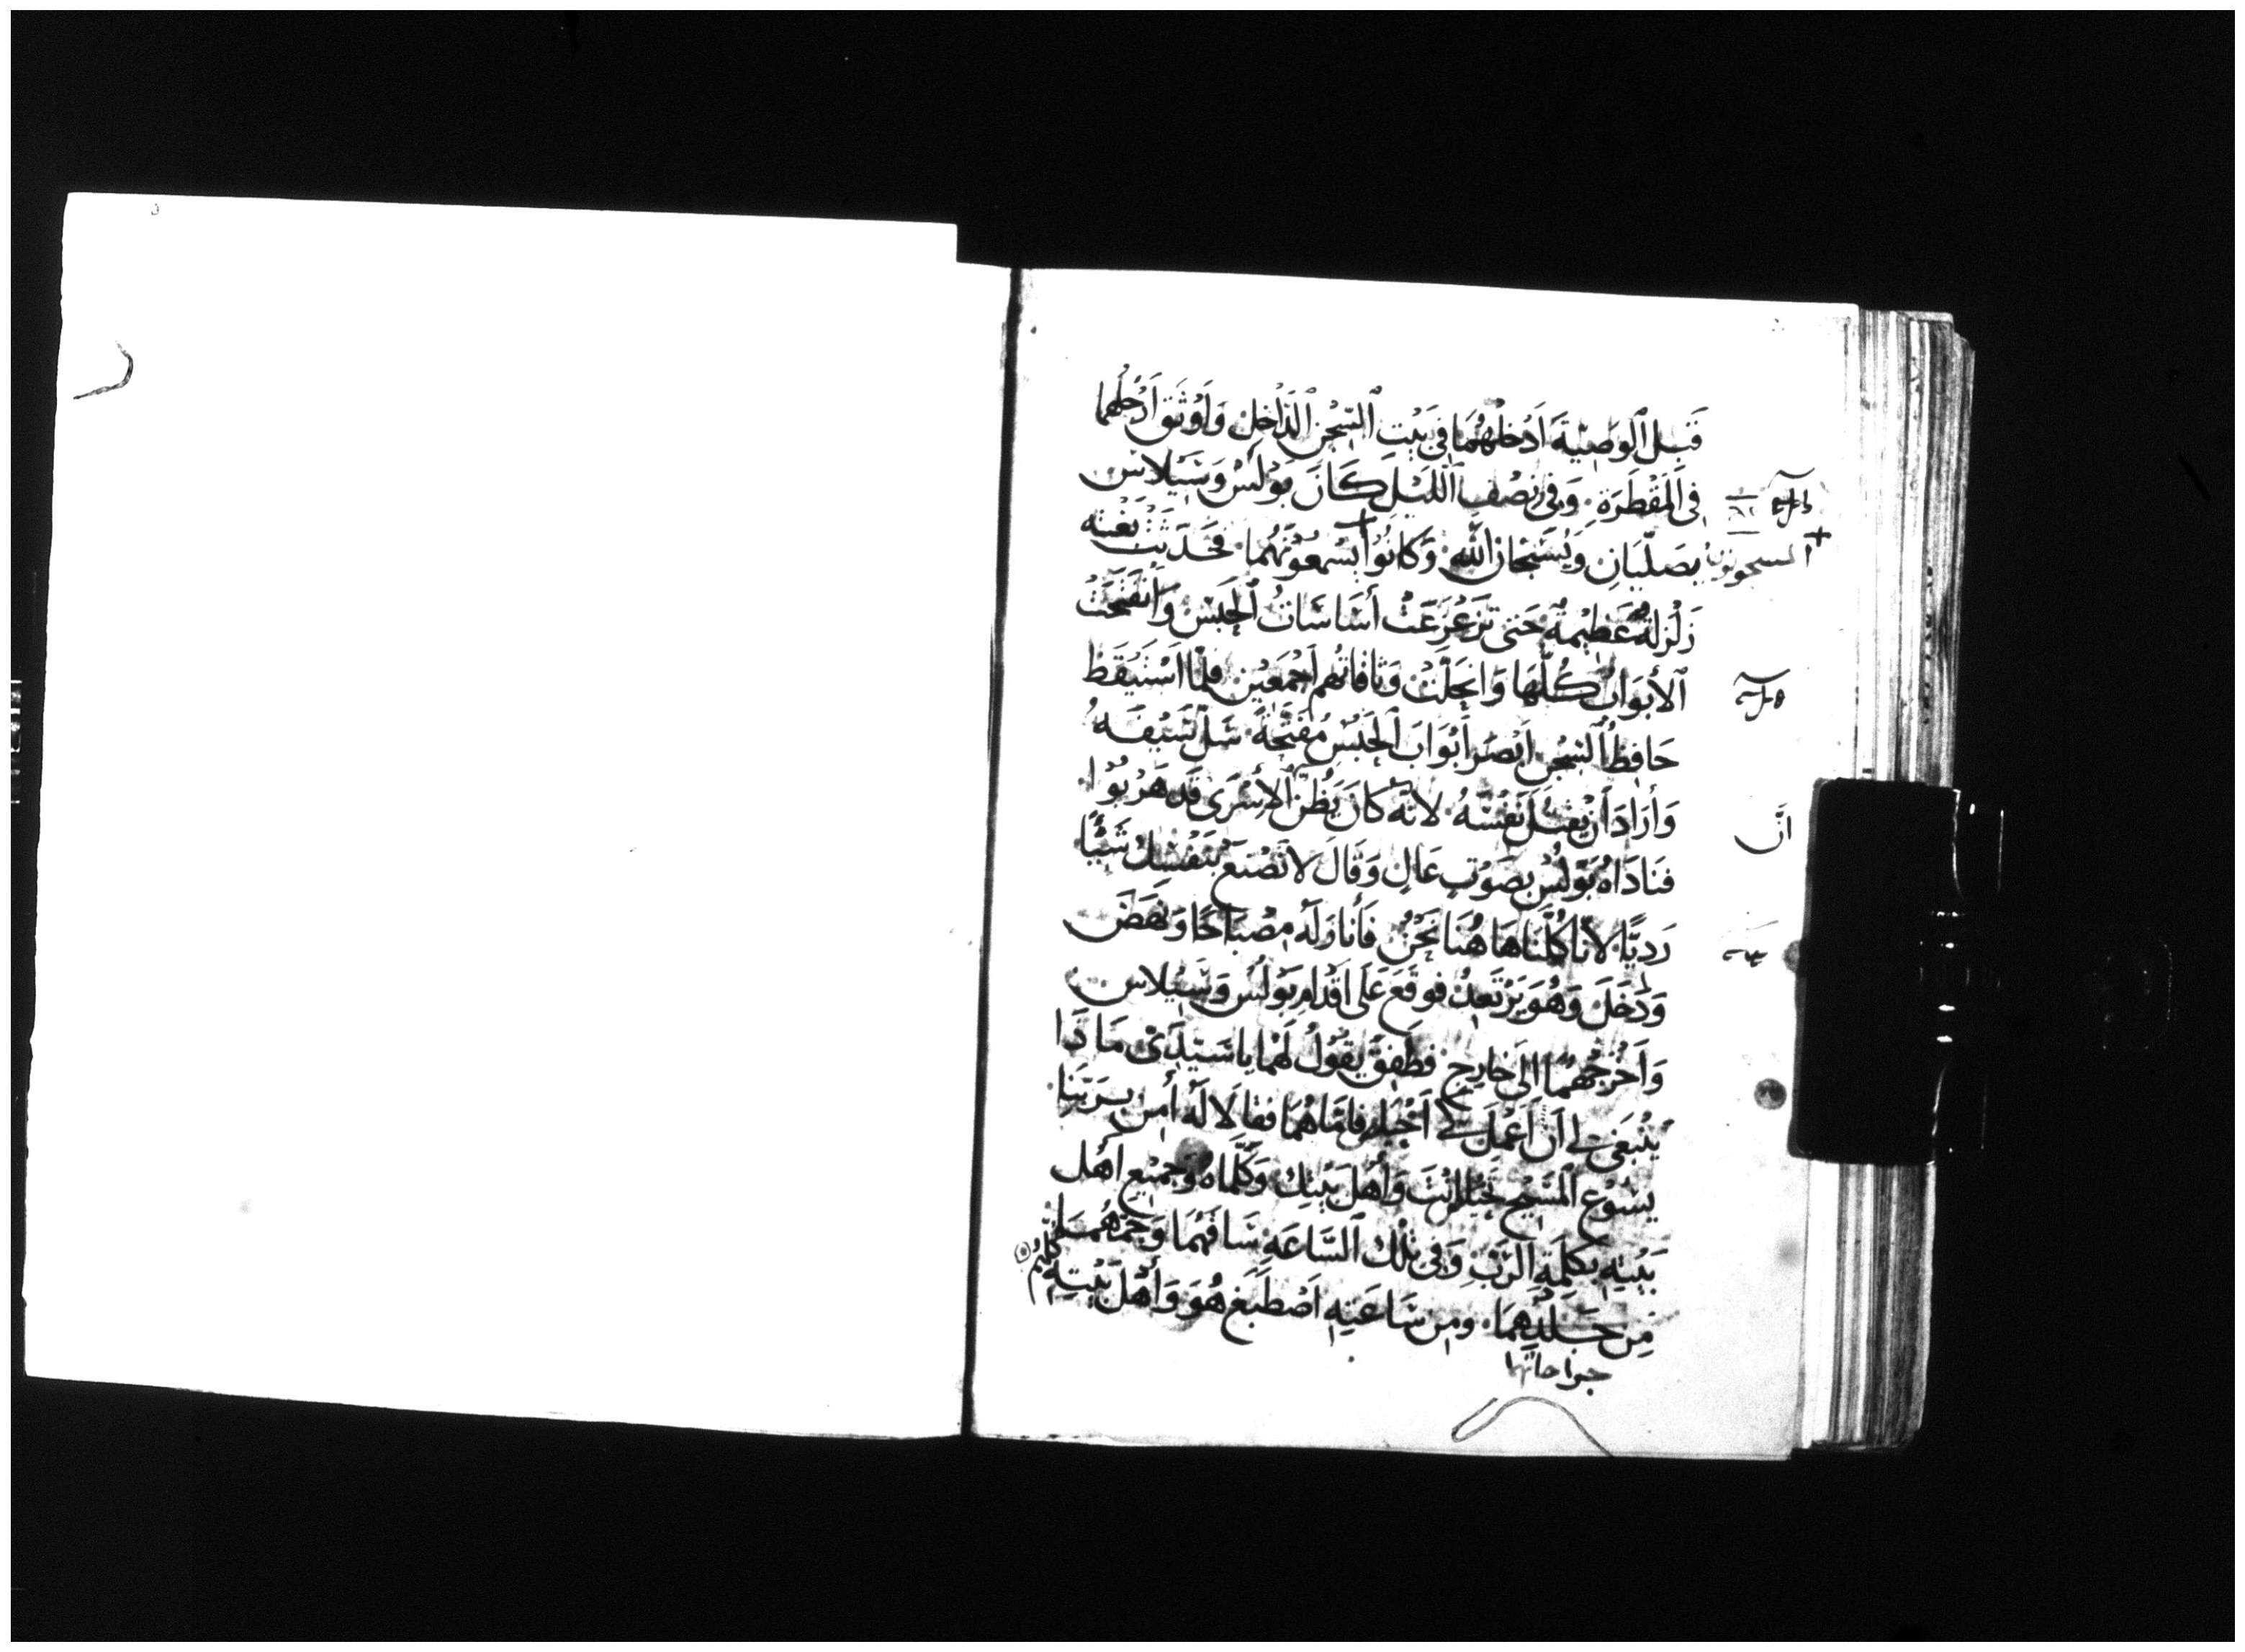 قَبِلَ ٱلوَصِيَّةَ اَدْخلَهُمَا فِى بَيْتِ ٱلسِّجْنِ ٱلدَّاخِلِ وَاَوْثَقَ اَرْجُلَهُمَا
فِى اَلمَقْطَرَةِ. وَفِى نِصْفِ ٱللَّيْلِ كَانَ بَوْلُسْ وَسَيْلَاس
يصَلِّيَانِ وَيُسَبِّحَانِ اللَّه وَكَانُوْا + يَسْمَعُوْنَهُمَا. فَحَدَثَتْ بَغْتَه
+ المسجونون
زَلْزلَةٌ عَظِيْمَةٌ حَتى تزَعْزَعَتْ أَسَاسَاتُ ٱلحَبْسْ وَاَنْفَتَحَتْ
ٱلأَبوَابُ كُلُّهَا وَانْحَلَّتْ وَثَاقَاتُهُم اَجْمَعِيْن فَلمَّا اَسْتَيْقَظْ
حَافِظُ ٱلسِّجْنِ اَبْصَرَ أَبْوَابَ ٱلحَبْسْ مُفَتَّحَةً سَلَّ سَيْفَهُ
وَأَرَادَ أَنْ يَقتُلَ نَفْسَهُ. لأَنَّهُ كَانَ يَظُنّ ٱلأَسْرَى قَد هَرَبُوْا
انَّ
فنَادَاهُ بَوْلُسْ بِصَوْتٍ عَالٍ وَقَالَ لاَ تَصْنَعْ بنَفْسِكْ شَيْئًا
رَدِيًّا. لأنَّا كُلَّنَا هَا هُنَا نَحْنُ فَأَنَارَ لَهُ مِصْبَاحًا وَنَهَضْ
وَدَخَلَ وَهُوَ يَرْتَعِدُ فوَقَعَ عَلَى اَقْدَامِ بَوْلُسْ وَسَيْلاس
وَاَخْرَجَهُمَا اِلَى خَارِجٍ فطَفِقَ يَقُوْلُ لَهُمَا يَا سَيِّدَىْ مَا ذَا
يَنْبَغِى لِى اَن اَعْمَلَ لِكَىْ اَخْلُص فامَّا هُمَا فقَالاَ لَهُ أَمِن بِرَبِّنَا
يَسُوْعْ ٱلمَسِيْحِ تَخْلُص اَنْتَ وَأَهْلَ بَيْتِكْ وَكَلَّمَاهُ وَجَمِيْعَ اَهْلِ
بَيْتِهِ بكلِمَةِ اَلرَّبِّ وَفِى تْلْكَ ٱلسَّاعَةِ سَاقَهُمَا وَحَمَّهُمَا
مِن جَلْدِهِمَا. ومِن سَاعَتِهِ اَصْطَبَغ هُوَ وَأَهْلَ بَيْتِهِ كُلُّهُم
جراحاتهما